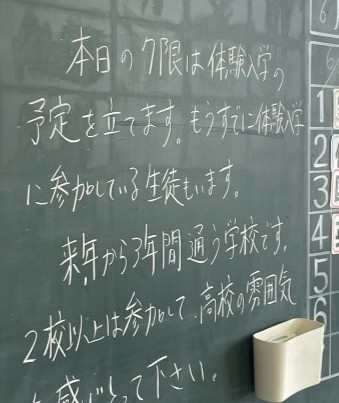 本日の7限は体験入学の
予定を立てます。もうすでに体験入学
に参加している生徒もいます。
来年から3年間通う学校です。
2校以上は参加して、高校の雰囲気
を感じとって下さい。
6
1
2
3
4
5
6